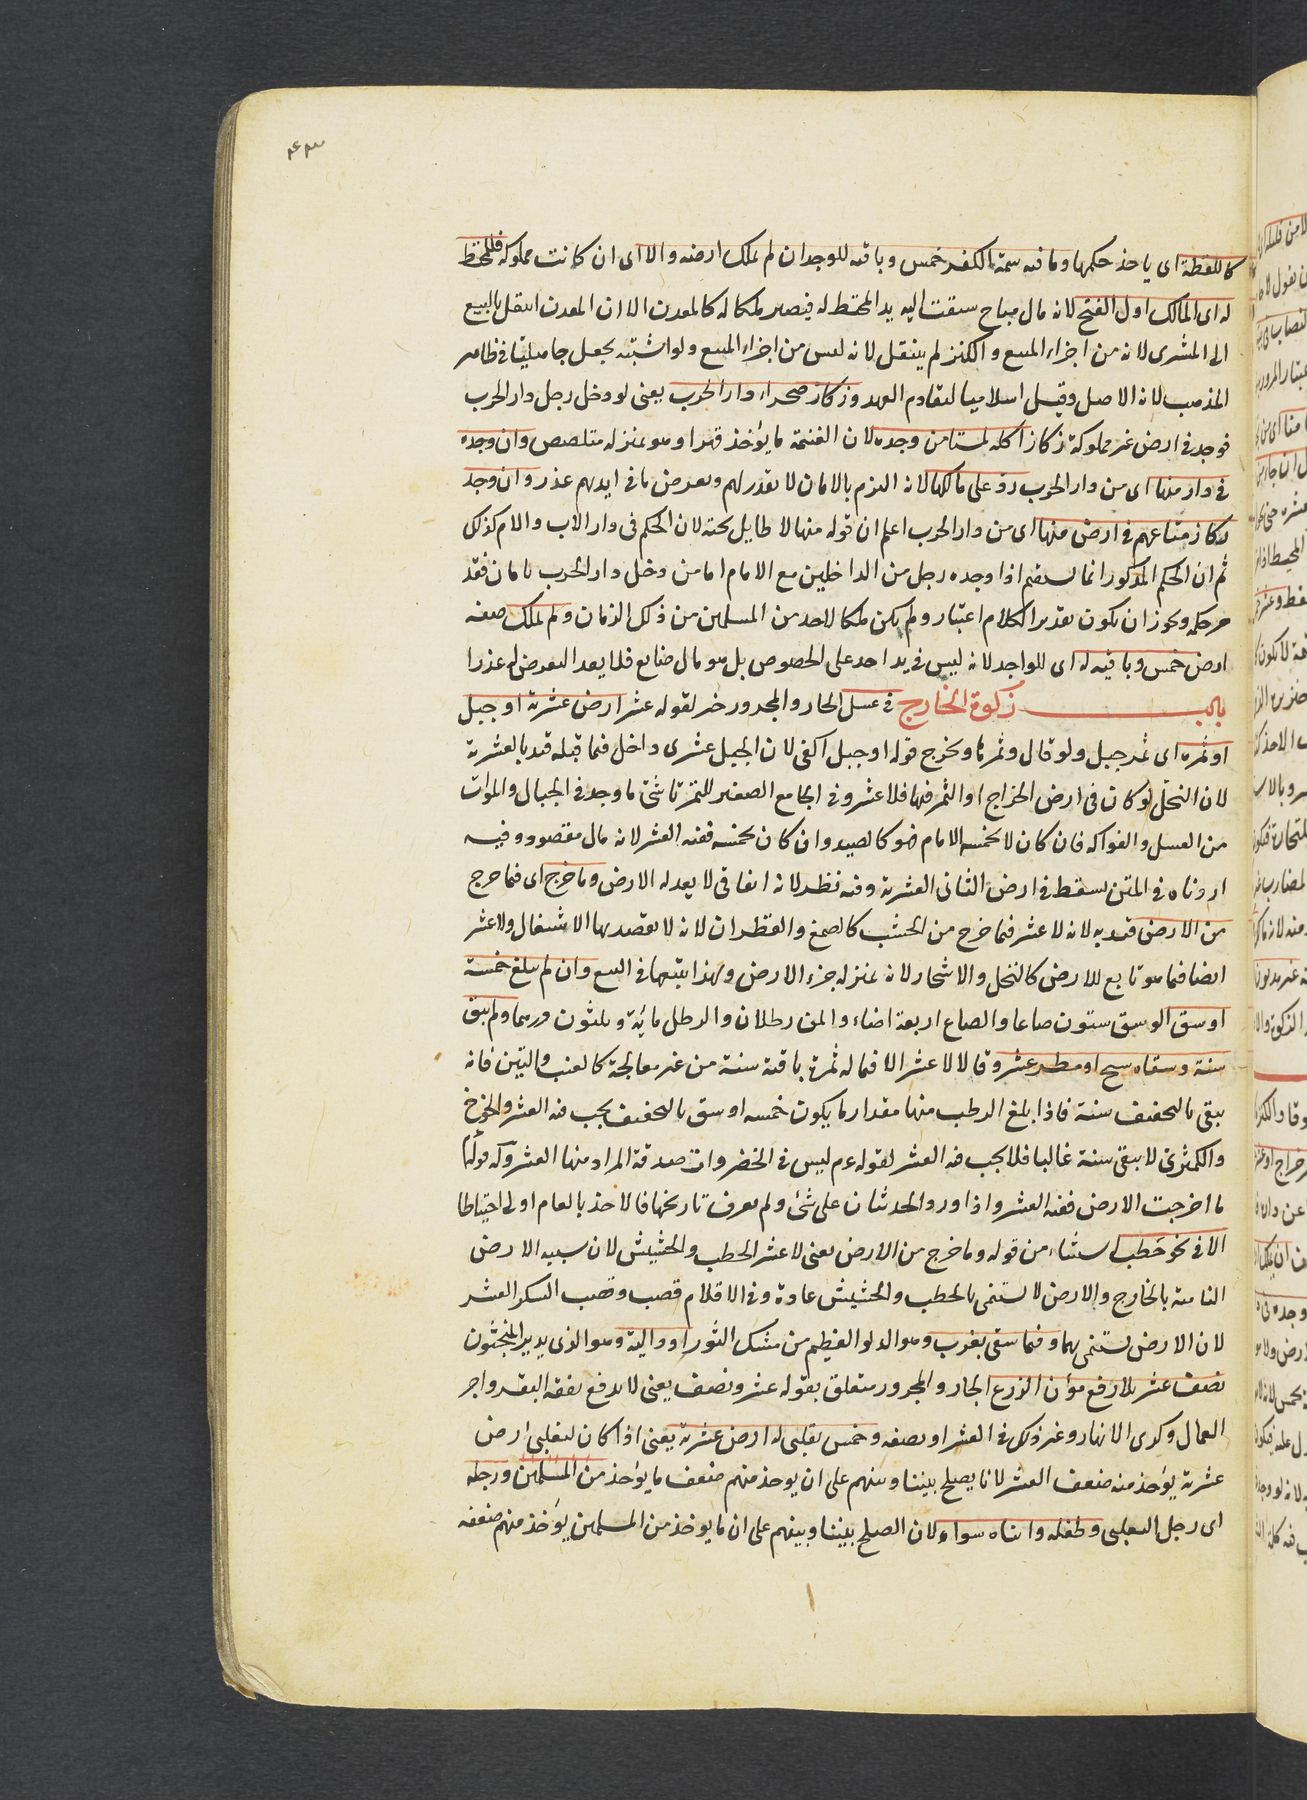 ٤٣
كاللقطة اى ياخذ حكمها وما فيه سمة الكفر خمس وباقيه للواجد ان لم يملك ارضه والا اى ان كانت مملوكة فللمختط
له اى المالك اول الفتح لانه مال مباح سبقت اليه يد المختط له فيصير ملكا له كالمعدن الا ان المعدن انتقل بالبيع
الى المشترى لانه من اجزاء المبيع والكنز لم ينتقل لانه ليس من اجزاء المبيع ولو اشتبه يجعل جاهليا فى ظاهر
المذهب لانه الاصل وقيل اسلاميا لتقادم العهد وركاز صحراء دار الحرب يعنى لو دخل رجل دار الحرب
فوجد فى ارض غير مملوكة ركازا كله لمستامن وجده لان الغنيمة ما يؤخذ قهرا وهو بمنزلة متلصص وان وجده
فى دار منها اى من دار الحرب رد على مالكها لانه التزم بالامان لا يغدر لهم وتعرض ما فى ايديهم غدر وان وجد
ركاز متاعهم فى ارض منها اى من دار الحرب اعلم ان قوله منها لا طايل تحته لان الحكم فى دار الاب والام كذلك
ثم ان الحكم المذكور انما يستقيم اذا وجده رجل من الداخلين مع الامام اما من دخل دار الحرب بامان فقد
مر حكمه ويجوز ان يكون تقدير الكلام اعتبار ولم يكن ملكا لاحد من المسلمين من ذلك الزمان ولم يملك صفه
ارض خمس وباقيه له اى للواجد لانه ليس فى يد احد على الخصوص بل هو مال ضايع فلا يعد التعرض له غدرا
باب زكوة الخارج فى عسل الجار والمجرور خبر لقوله عشر ارض عشرية او جبل
او ثمره اى ثمر جبل ولو قال وثمرها ويخرج قوله او جبل اكفى لان الجبل عشرى داخل فيما قبله قيد بالعشرية
لان النحل لو كان فى ارض الخراج او الثمر فيها فلا عشر وفى الجامع الصغير للتمرتاشى ما وجد فى الجبال والموات
من العسل والفواكه فان كان لا يحميه الامام فهو كالصيد وان كان يحميه ففيه العشر لانه مال مقصود وفيه
اردناه فى المتن يسقط فى ارض الثانى العشرية وفيه نظر لانه اتفاقى لا يعد له الارض وما خرج اى فيما خرج
من الارض قيد به لانه لا عشر فيما خرج من الخشب كالصمغ والقطران لانه لا يقصد بها الاشتغال ولا عشر
ايضا فيما هو تابع للارض كالنخل والاشجار لانه بمنزلة جزء الارض ولهذا يتبعها فى البيع وان لم يبلغ خمسة
اوسق الوسق ستون صاعا والصاع اربعة امناء والمن رطلان والرطل مائة وثلثون درهما ولم يبق
سنة وسقاه سيح او مطر عشر وقالا لا عشر الا فيما له ثمرة باقية سنة من غير معالجة كالعنب والتين فانه
يبقى بالتجفيف سنة فاذا بلغ الرطب منها مقدار ما يكون خمسه اوسق بالتجفيف يجب فيه العشر والخوخ
والكمثرى لا يبقى سنة غالبا فلا يجب فيه العشر لقوله عم ليس فى الخضروات صدقة المراد منها العشر وله قوله
ما اخرجت الارض ففيه العشر واذا ورد الحديثان على شئ ولم يعرف تاريخها فالاخذ بالعام اولى احتياطا
الا فى نحو حطب استثناء من قوله وما خرج من الارض يعنى لا عشر الحطب والحشيش لان سببه الارض
النامية بالخارج والارض لا تستنمى بالحطب والحشيش عادة وفى الاقلام قصب وقصب السكر العشر
لان الارض يستنمى بهما وفيما سقى بغرب وهو الدلو العظيم من مسك الثور او دالية وهو الذى يدير المنجنون
نصف عشر بلا رفع مؤن الزرع الجار والمجرور متعلق بقوله عشر ونصف يعنى لا يدفع نفقة البقر واجر
العمال وكرى الانهار وغير ذلك فى العشر او نصفه وخمس تغلبى له ارض عشرية يعنى اذا كان لتغلبى ارض
عشرية يؤخذ منه ضعف العشر لانا يصلح بيننا وبينهم على ان يوخذ منهم ضعف ما يؤخذ من المسلمين ورجله
اى رجل التغلبى وطفله وانثاه سواء لان الصلح بيننا وبينهم على ان ما يوخذ من المسلمين يؤخذ منهم ضعفه